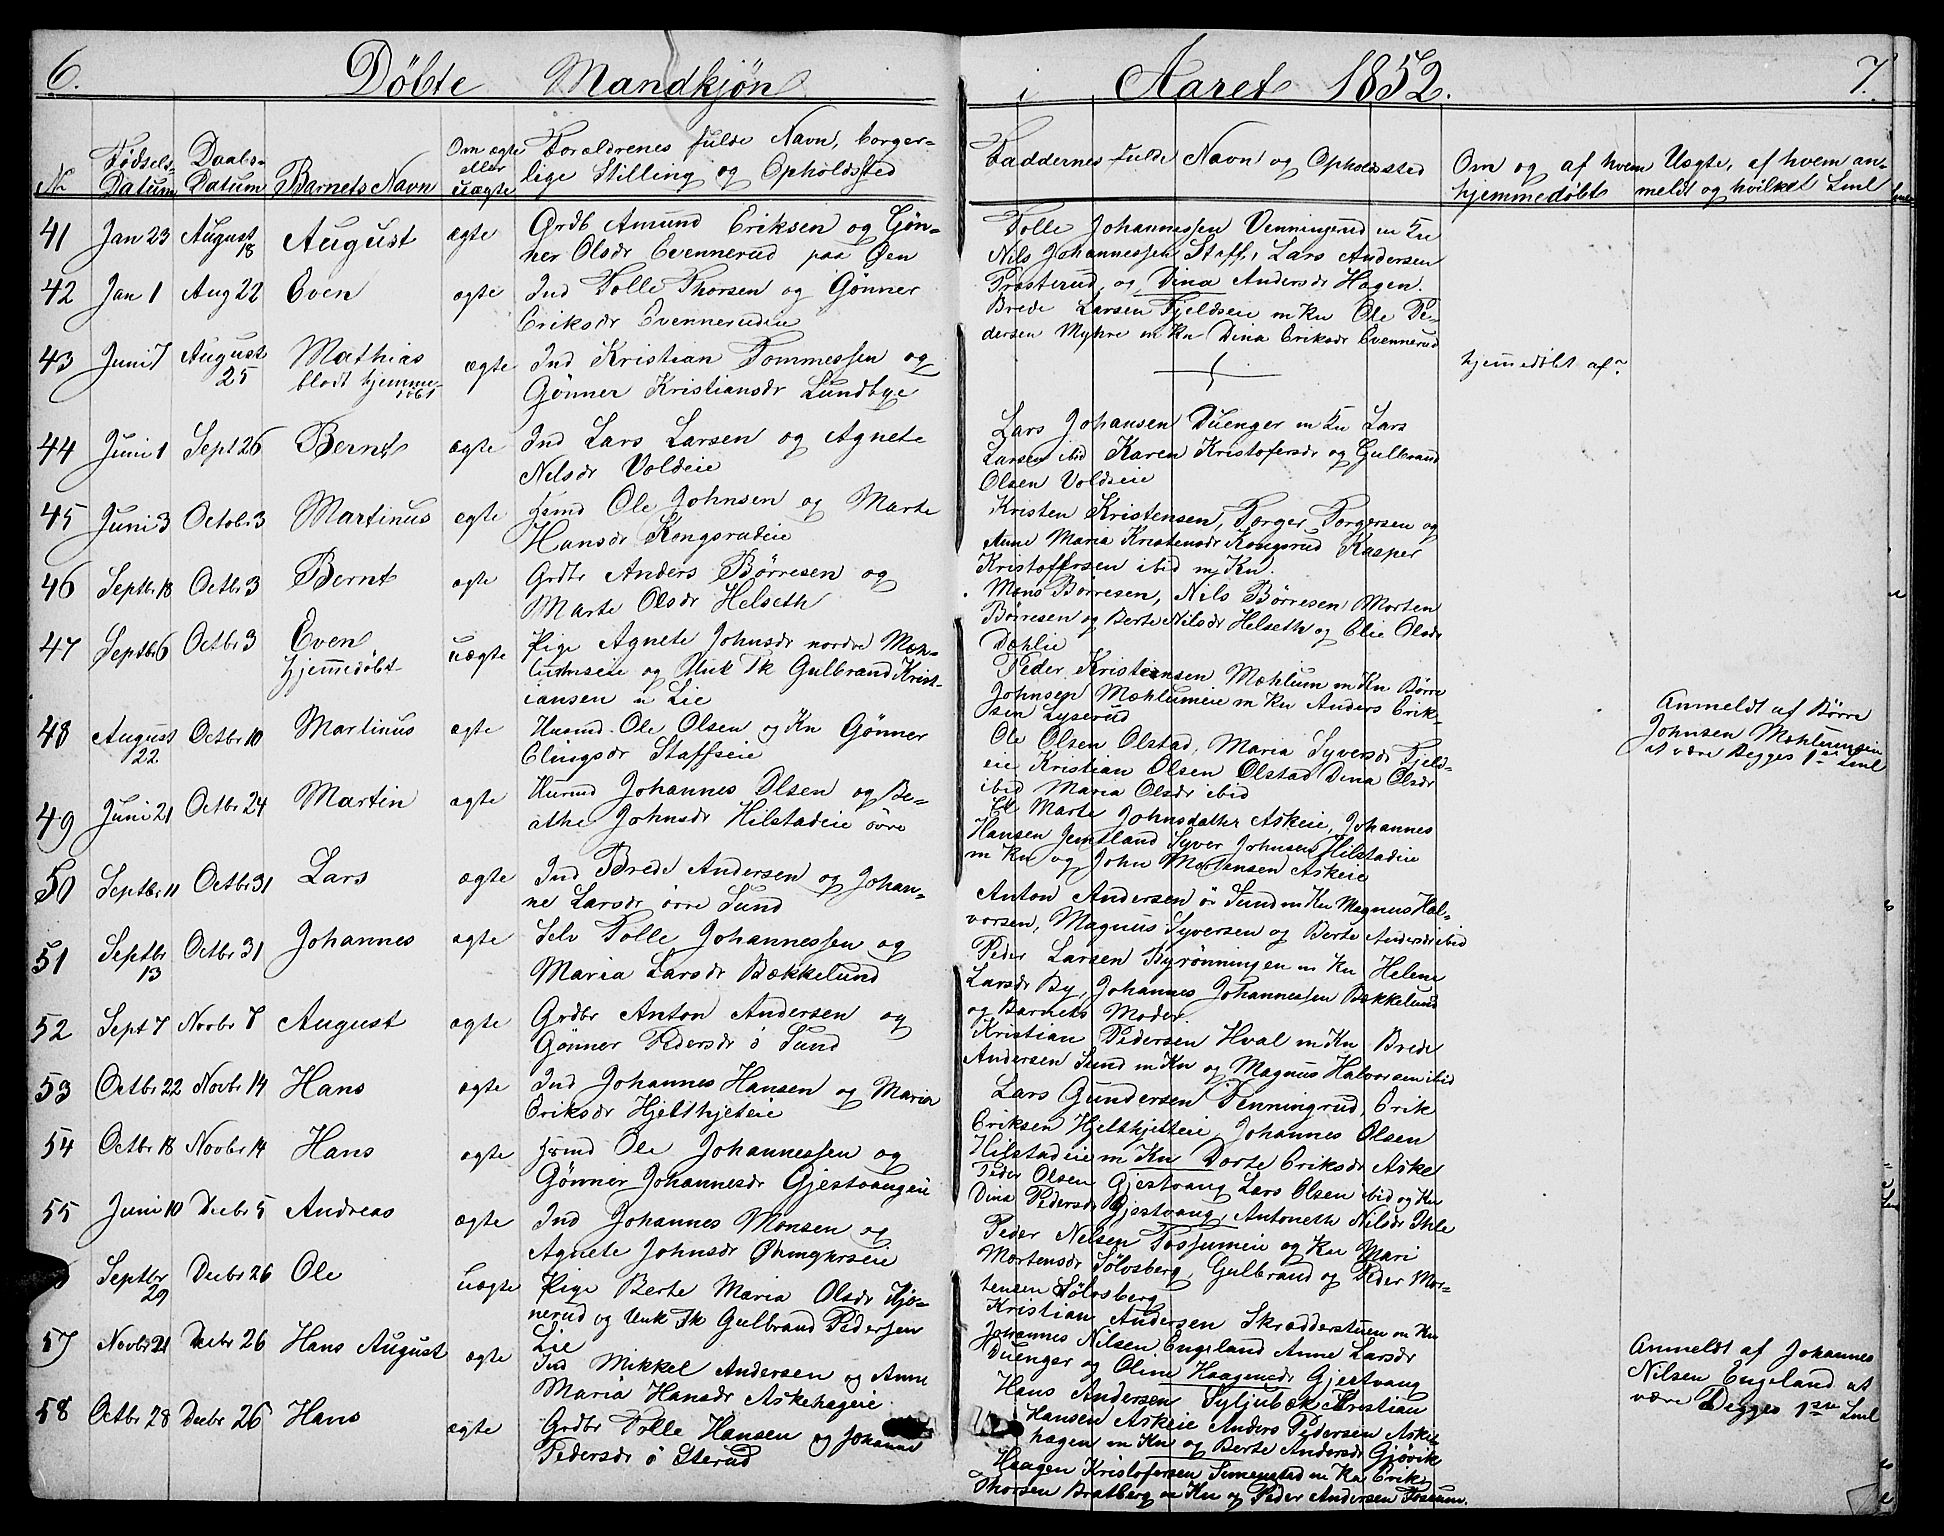 6. Döbte Mandkjön
i Aaret 1852. 7.
No Fødsels-Datum Daabs-Datum Barnets Navn Om ægte eller uægte Forældrenes fulde Navn, borgerlige Stilling og Opholdssted
Faddernes fulde Navn og Opholdssted Om og af hvem hjemmedøbt Uægte, af hvem anmeldt og hvilket Leiml
41 Jan 23 August 18 August ægte Grdb Amund Eriksen og Gön-
ner Olsdr Evennerud paa Øen
42 Jan 1 Aug 22 Even ægte Ind Tolle Thorsen og Gönner
Eriksdr Evennerudeie
43 Juni 7 August 25 Mathias ægte Ind Kristian Tommessen og
blodt hjemme- Gönner Kristiansdr Lundbye
44 Juni 1 Sept 26 Bernt ægte Ind Lars Larsen og Agnete
Nilsdr Voldeie
45 Juni 3 Octob. 3 Martinus ægte Ole Johnsen og Marte
Hansdr Kongsrudeie
46 Septbr 18 Octbr 3 Bernt ægte Grdbr Anders Børresen og
Marte Olsdr Helseth
47 Septbr 6 Octbr 3 Even uægte Pige Agnete Johnsdr nordre Mæh-
hjemedöbt og Unk Tk Gulbrand Krist-
iansen Lie
48 August 22 Octbr 10 Martinus ægte Husmd Ole Olsen og Kn Gönner
Elingsdr Staffseie
49 Juni 21 Octbr 24 Martin ægte Husmd Johannes Olsen og Be-
athe Johnsdr Hilstadeie övre
50 Septbr 11 Octbr 31 Lars ægte Ind Brede Andersen og Johan-
ne Larsdr övre Sund
51 Septbr 13 Octbr 31 Johannes ægte Selv Tolle Johannessen og
Maria Larsdr Bækkelund
52 Sept 7 Novbr 7 August ægte Grdbr Anton Andersen og
Gönner Pedersdr ö Sund
53 Octbr 22 Novbr 14 Hans ægte Ind Johannes Hansen og Maria
Eriksdr Hjelthjeteie
54 Octbr 18 Novbr 14 Hans ægte Ole Johannessen og
Gönner Johannesdr Gjestvangeie
55 Juni 10 Decbr 5 Andreas ægte Ind Johannes Monsen og
Agnete Johnsdr
Septbr 29 Decbr 26 Ole uægte Pige Berte Maria Olsdr Kjö-
nerud og Unk Tk Gulbrand Pedersen
Lie
57 Novbr 21 Decbr 26 Hans August ægte Ind Mikkel Andersen og Anne
Maria Hansdr Askehageie
58 Octbr 28 Decbr 26 Hans ægte Grdbr Tolle Hansen og Johanne
Pedersdr ö Sterud
Tolle Johannessen Venningerud m Kn
Nils Johannessen Staff, Lars Andersen
Prösterud, og Dina Andersdr Hagen.
Brede Larsen Fjeldseie m Kn Ole Pe-
dersen Myhre m Kn Dina Eriksdr Evennerud
hjemedöbt af?
Lars Johansen Duenger m Kn Lars
Larsen ibid Karen Kristofersdr og Gulbrand
Olsen Voldseie
Kristen Kristensen, Torger Torgersen og
Anne Maria Kristensdr Kongsrud Kasper
Kristoffersen ibid m Kn.
Mons Börresen, Nils Börresen Morten
Börresen og Berte Nilsdr Helseth og Olie Olsdr
Dæhlie
Peder Kristiansen Mæhlum m Kn Börre
Johnsen Mæhlumeie m Kn Anders Erik-
sen Lyserud
Anmeldt af Börre
Johnsen Mæhlumeie
at være Begges 1ste
Ole Olsen Olstad, Maria Syversdr Fjeld-
eie Kristian Olsen Olstad Dina Olsdr
ibid Maria Olsdr ibid
Marte Johnsdatter Askeie, Johannes
Hansen Jemtland Syver Johnsen Hilstadeie
m Kn og John Mortensen Askeie
Anton Andersen ö Sund m Kn Magnus Hal-
vorsen, Magnus Syversen og Berte Andersdr ibid
Peder Larsen Byrönningen m Kn Helene
Larsdr By, Johannes Johannessen Bækkelund
og Barnets Moder.
Kristian Pedersen Hval m Kn Brede
Andersen Sund m Kn og Magnus Halvorsen ibid
Lars Gundersen Penningrud, Erik
Eriksen Hjelthjetteie, Johannes Olsen
Hilstadeie m Kn Dorte Eriksdr Aske
Peder Olsen Gjestvang Lars Olsen ibid og Kn
Dina Pedersdr Gjestvang, Antoneth Nilsdr Ihle
Peder Nelsen Fossumeie og Kn Mari
Mortensdr Sölvsberg, Gulbrand og Peder Mor-
tensen Sölvsberg
Kristian Andersen Skrædderstuen m Kn
Johannes Nilsen Engeland Anne Larsdr
Duenger og Oline Haagensdr Gjestvang
Anmeldt af Johannes
Nilsen Engeland at
være Begges 1ste
Hans Andersen Syljubæk Kristian
Hansen Askeie Anders Pedersen Aske-
hagen m Kn og Berte Andersdr Gjövik
Haagen Kristofersen Simensted m Kn Erik
Thorsen Bratberg m Kn og Peder Andersen Fossum.